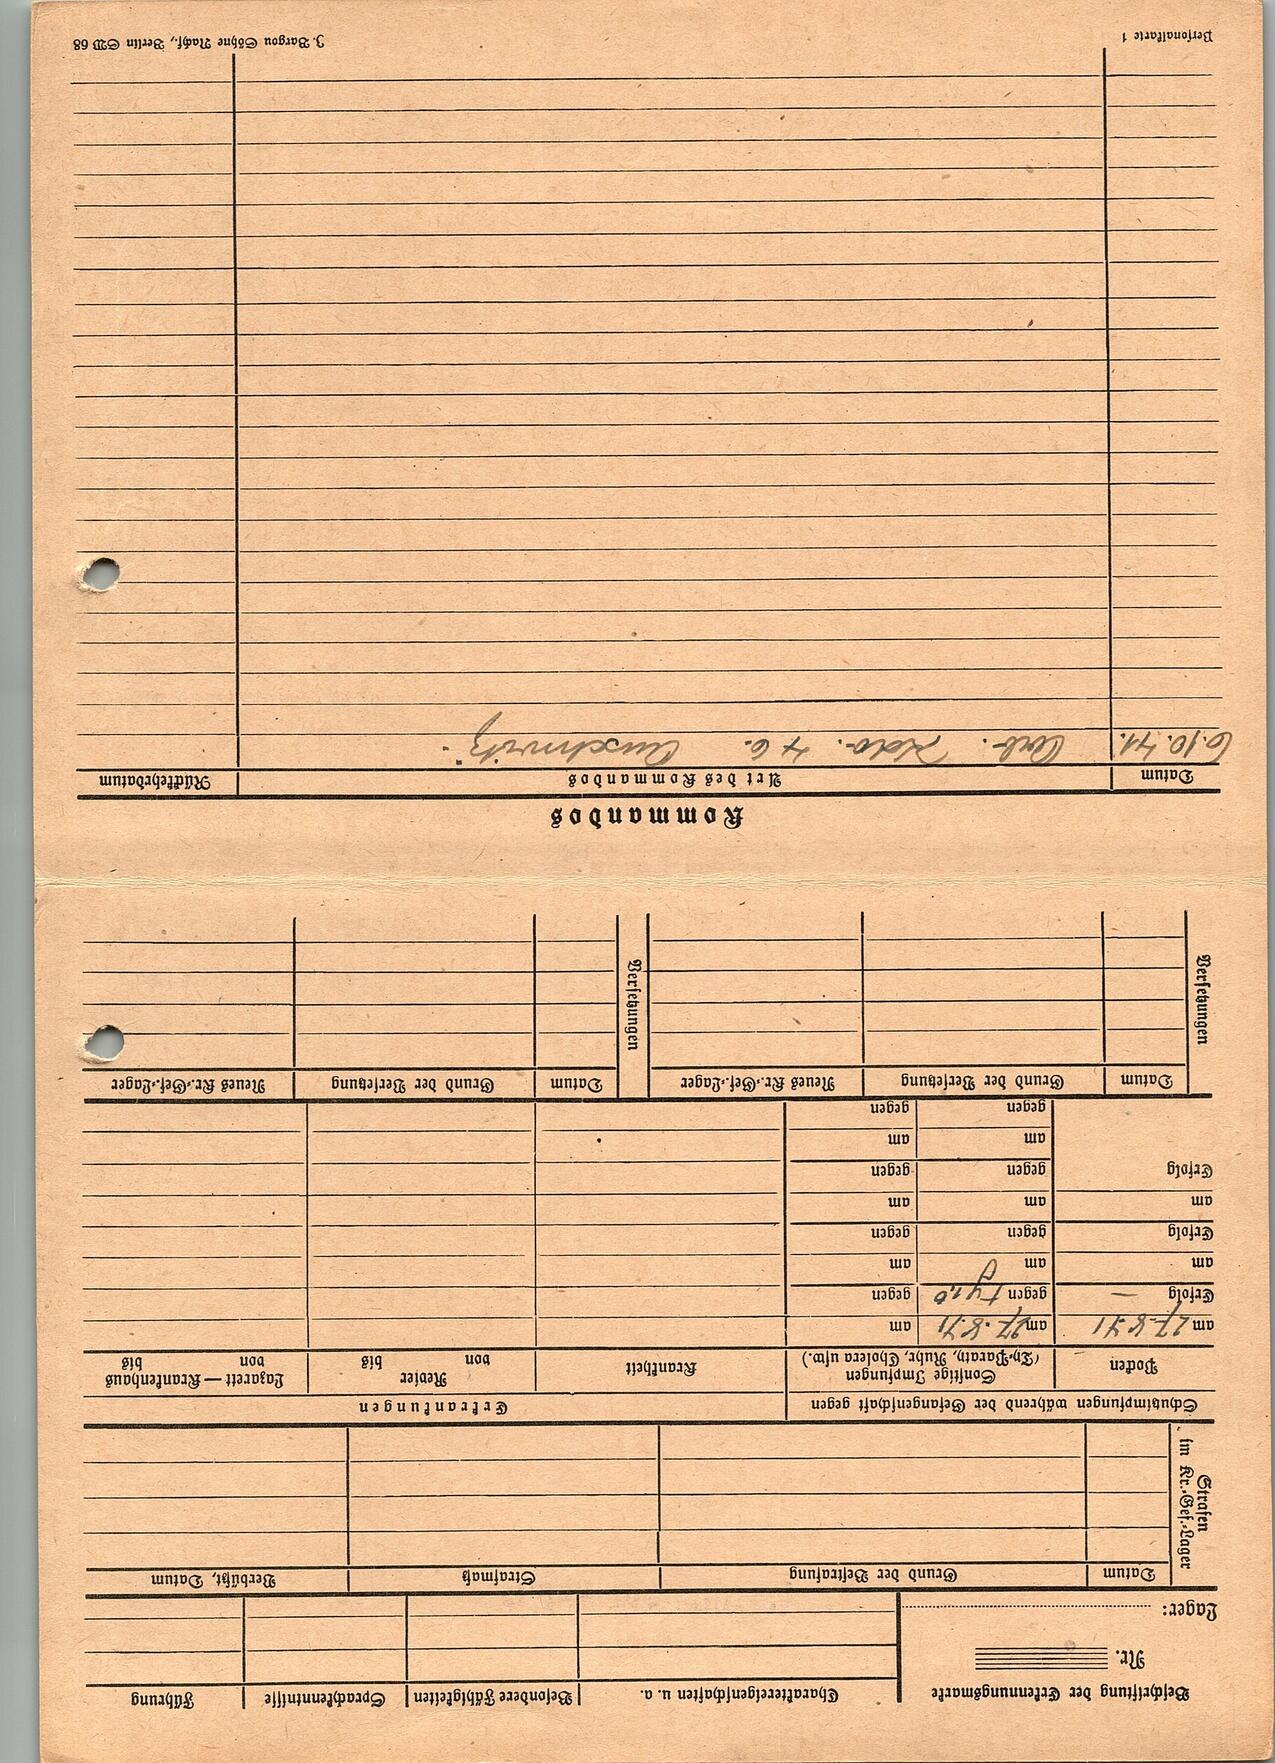 Beschriftung der Erkennungsmarke
Nr.
Lager:
Charaktereigenschaften u. a. Besondere Fähigkeiten Sprachkenntnisse Führung
Strafen im Kr.-Gef.-Lager
Datum Grund der Bestrafung Strafmaß Verbüßt, Datum
Schutzimpfungen während der Gefangenschaft gegen Erkrankungen
Pocken Sonstige Impfungen (Ty-Paraty, Ruhr, Cholera usw.) Krankheit Revier von bis Lazarett — Krankenhaus von bis
am 27.8.41 am 27.8.41 am
Erfolg — gegen gegen
am am am
Erfolg gegen gegen
am am am
Erfolg gegen gegen
am am
gegen gegen
Versetzungen Datum Grund der Versetzung Neues Kr.-Gef.-Lager Versetzungen Datum Grund der Versetzung Neues Kr.-Gef.-Lager
Kommandos
Datum Art des Kommandos Rückkehrdatum
6.10.41. Arb. Kdo. Auschwitz
Personalkarte 1 J. Bargou Söhne Nachf., Berlin SW 68